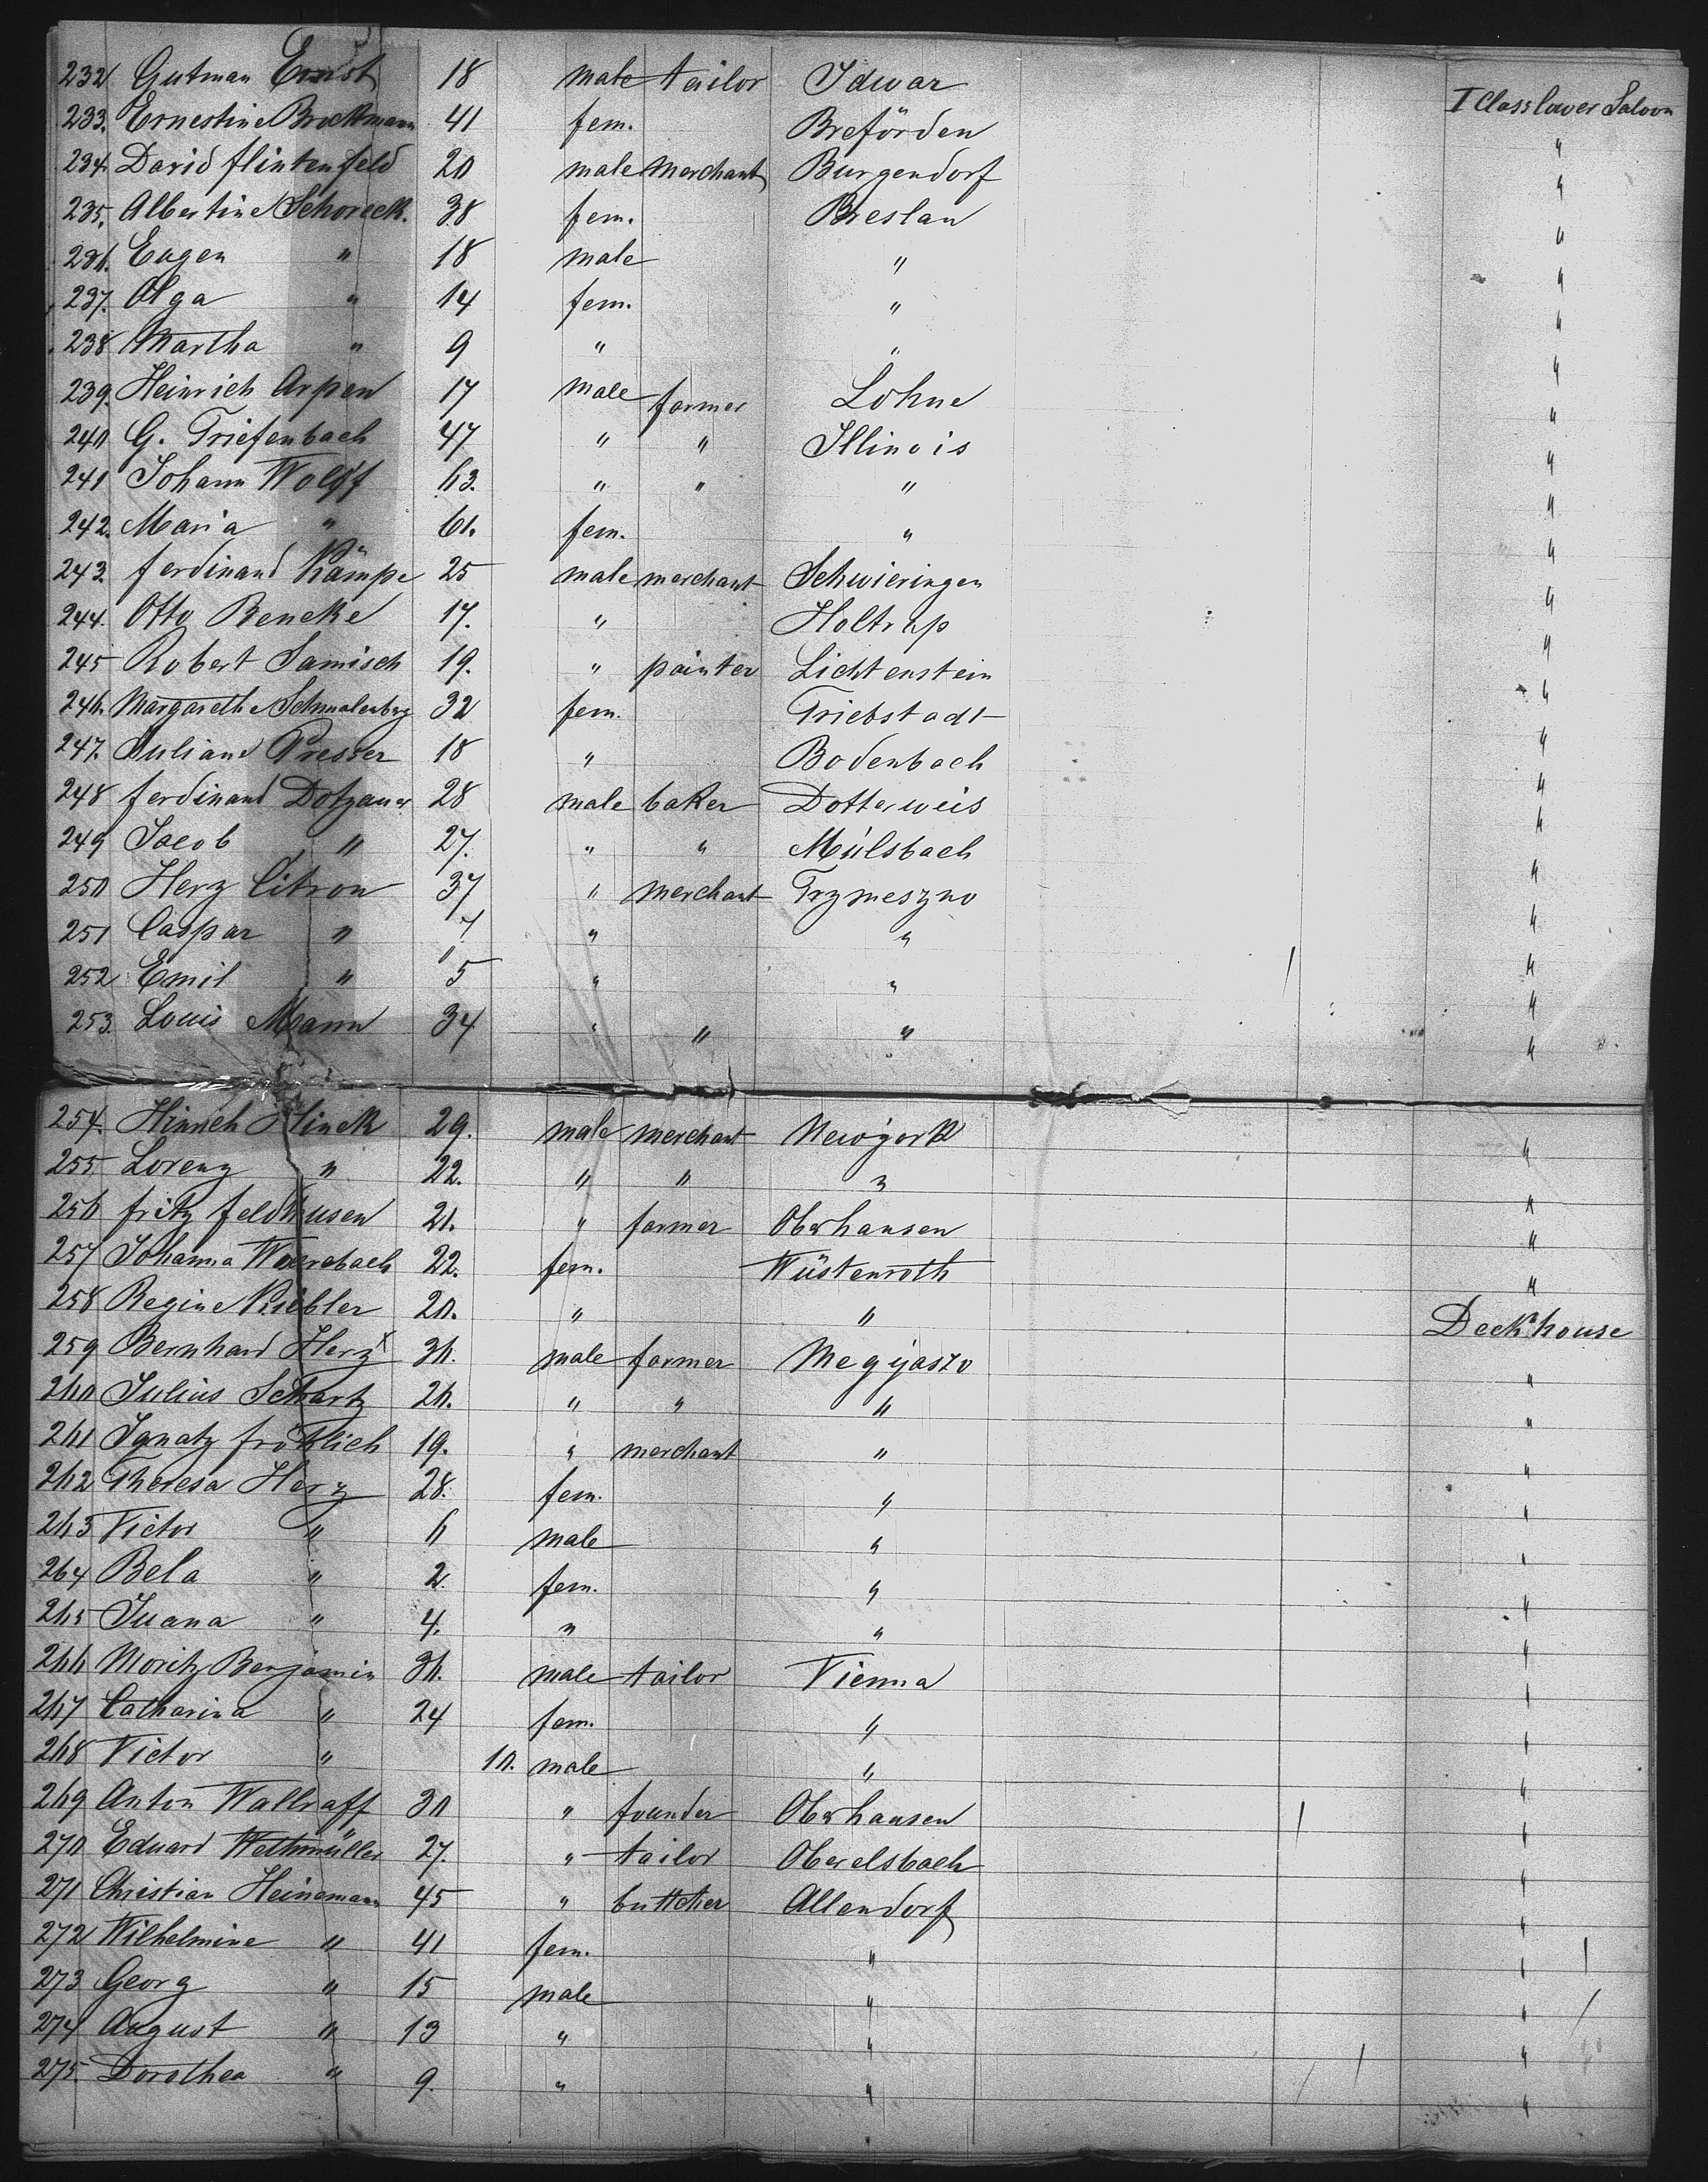 232 Gutman Ernst 18 male tailor Idwar I Class lower Saloon
233. Ernestine Brockmann 41 fem. Breförden "
234. David flintenfeld 20 male merchant Burgendorf "
235. Albertine Schoreck. 38 fem. Breslau "
236. Eugen " 18 male " "
237. Olga " 14 fem. " "
238 Martha " 9 " " "
239. Heinrich Arpen 17 male farmer Lohne "
240 G. Triefenbach 47 " " Illinois "
241 Johann Wolff 63. " " " "
242. Maria " 61. fem. " "
243. ferdinand Kämpe 25 male merchant Schwieringen "
244. Otto Beneke 17. " Holtrup "
245 Robert Samisch 19. " painter Lichtenstein "
246. Margarethe Schmalenbrg 32 fem. Triebstadt "
247. Juliane Presser 18 " Bodenbach "
248 ferdinand Dotzauer 28 male baker Dotterweis "
249 Jacob " 27. " " Mülsbach "
250 Herz Citron 37 " merchant Trzmeszno "
251 Caspar " 7 " " "
252 Emil " 5 " " "
253. Louis Mann 34 " " " "
254. Hinrich Hinck 29. male merchant Newyork "
255 Lorenz " 22. " " " "
256 fritz feldhusen 21. " farmer Oberhausen "
257 Johanna 22. fem. Wüstenroth "
258 Regine Kiebler 20. " " Deckhouse
259 Bernhard Herz x 36. male farmer Megyaszo "
260 Julius Schwartz 26. " " " "
261 Ignatz fröhlich 19. " merchant " "
262 Theresa Herz 28. fem. " "
263 Victor " 6 male " "
264 Bela " 2. fem. " "
265 Juana " 4. " " "
266 Moritz Benjamin 36. male tailor Vienna "
267 Catharina " 24 fem. " "
268 Victor " 10. male " "
269 Anton Wallraff 30 " founder Oberhausen "
270 Eduard Wethmüller 27. " tailor Oberelsbach "
271 Christian Heinemann 45 " buttcher Allendorf "
272 Wilhelmine " 41 fem. " "
273 Georg " 15 male " "
274 August " 13 " " "
275. Dorothea " 9. " " "